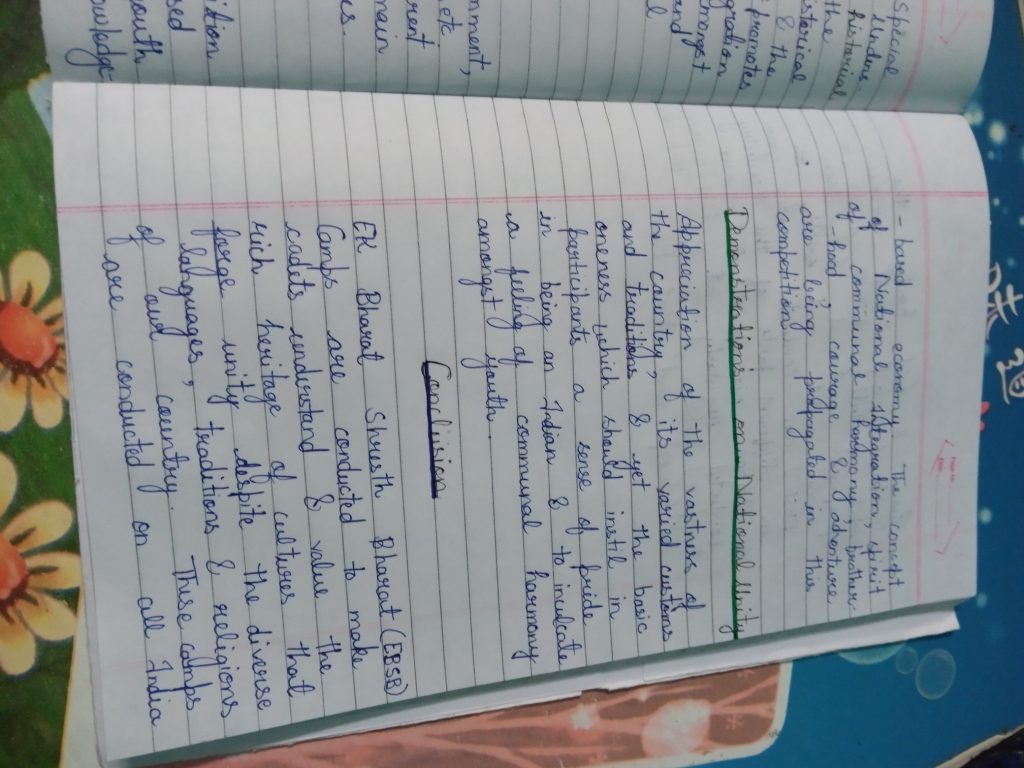 Special
historical
the
istorical
& the
promotes
gration
mongst
and
mment,
rent
main
ition
sed
outh
owledge
-based economy. The concept
of National Integration, spirit
of communal harmony, brother
-hood, courage & adventure
are being propagated in this
competition.
Demonstrations on National Unity
Appreciation of the vastness of
the country, its varied customs
and traditions & yet the basic
oneness which should instil in
participants a sense of pride
in being an Indian & to inculcate
a feeling of communal harmony
amongst youth.
Conclusion
EK Bharat Shresth Bharat (EBSB)
Camps are conducted to make
cadets understand & value the
rich heritage of cultures that
forge unity despite the diverse
languages, traditions & religions
of our country. These camps
are conducted on all India